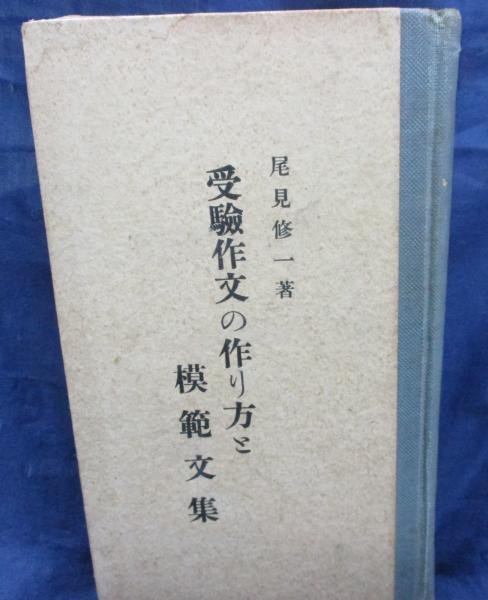 尾見修一著
受驗作文の作り方と
模範文集